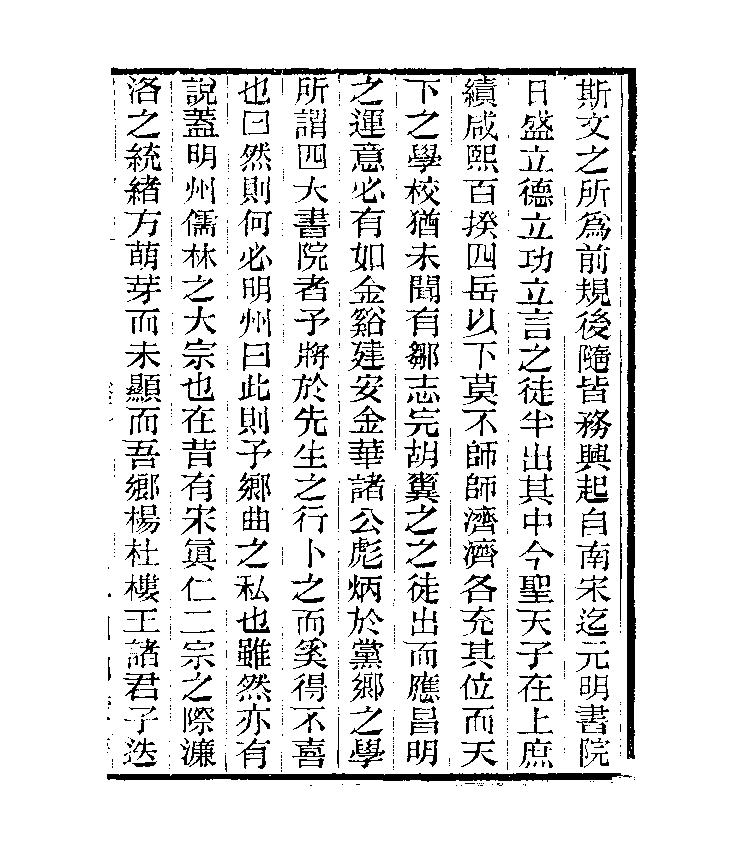 斯文之所爲前規後隨皆務興起自南宋迄元明書院
日盛立德立功立言之徒半出其中今聖天子在上庶
績咸熙百揆四岳以下莫不師師濟濟各充其位而天
下之學校猶未聞有鄒志完胡翼之之徒出而應昌明
之運意必有如金谿建安金華諸公彪炳於黨鄉之學
所謂四大書院者予將於先生之行卜之而奚得不喜
也曰然則何必明州曰此則予鄉曲之私也雖然亦有
說蓋明州儒林之大宗也在昔有宋眞仁二宗之際濂
洛之統緒方萌芽而未顯而吾鄉楊杜樓王諸君子迭